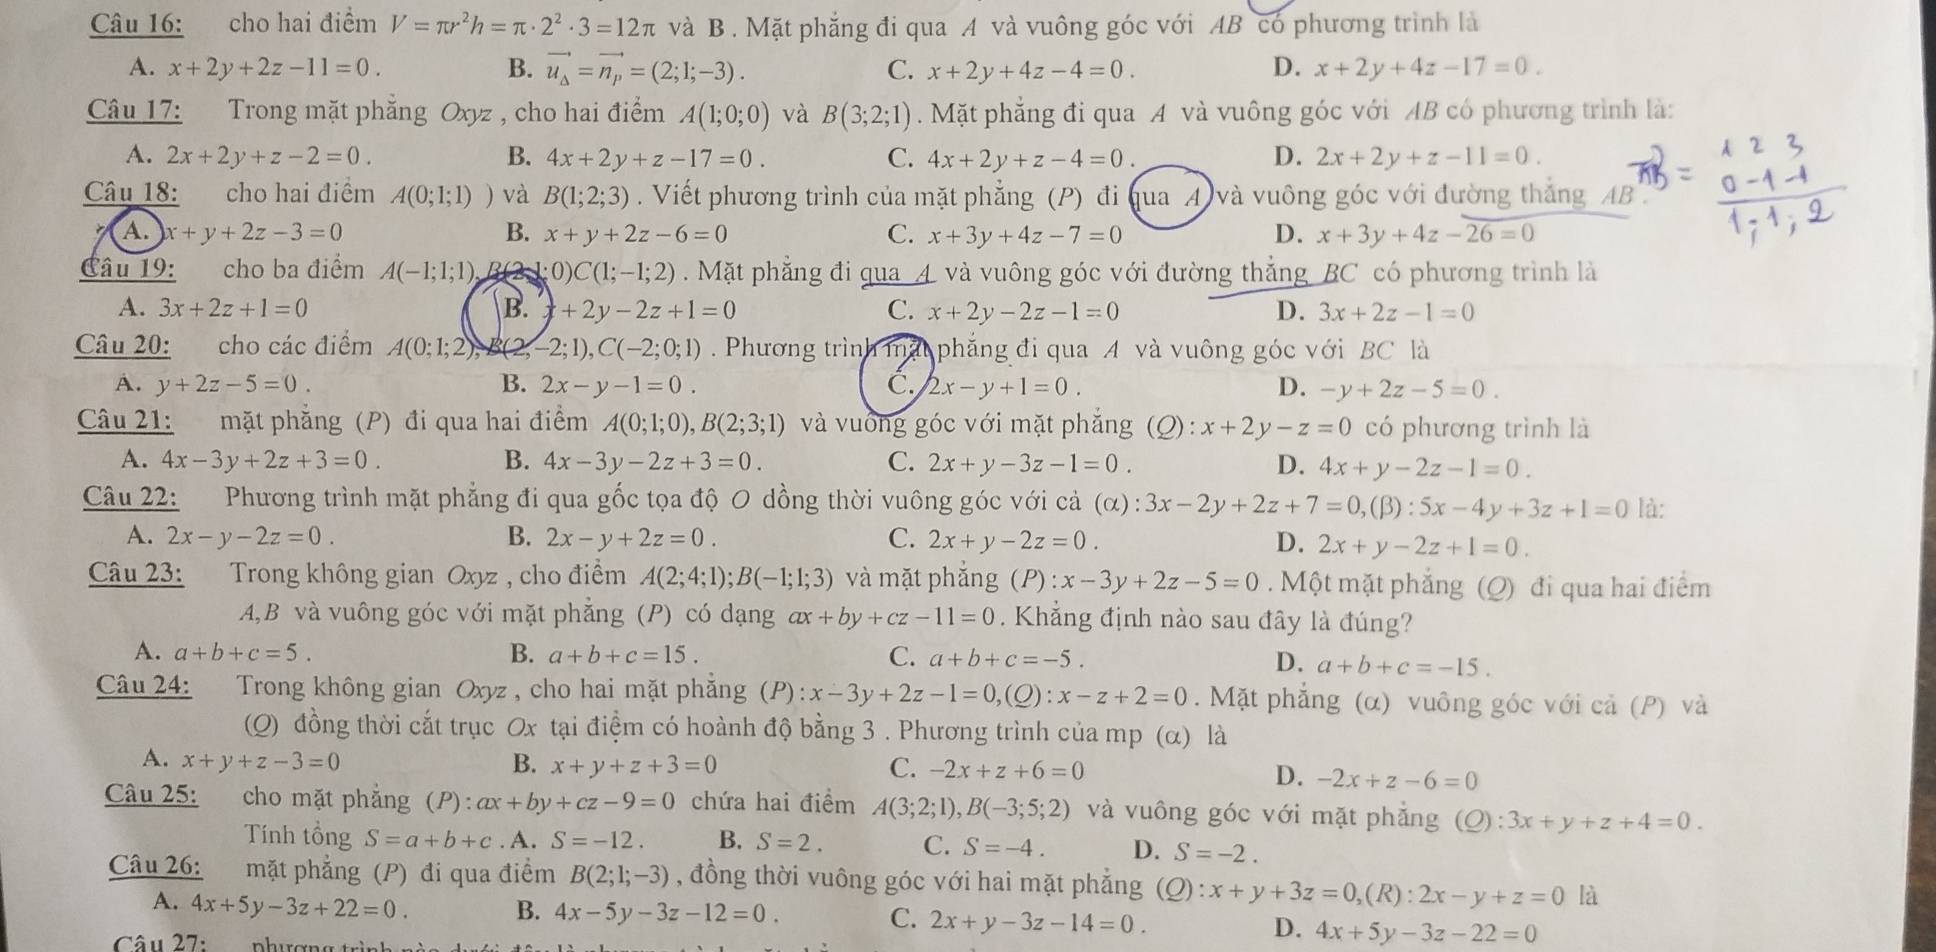 Câu 16: cho hai điểm V = πr²h = π·2²·3 = 12π và B. Mặt phẳng đi qua A và vuông góc với AB có phương trình là
A. x+2y+2z−11=0. B. \overrightarrow{u_Δ} = \overrightarrow{n_P} = (2;1;−3). C. x+2y+4z−4=0. D. x+2y+4z−17=0.
Câu 17: Trong mặt phẳng Oxyz, cho hai điểm A(1;0;0) và B(3;2;1). Mặt phẳng đi qua A và vuông góc với AB có phương trình là:
A. 2x+2y+z−2=0. B. 4x+2y+z−17=0. C. 4x+2y+z−4=0. D. 2x+2y+z−11=0.
Câu 18: cho hai điểm A(0;1;1) ) và B(1;2;3). Viết phương trình của mặt phẳng (P) đi qua A và vuông góc với đường thẳng AB.
\overrightarrow{AB} = 1 2 3
0 -1 -1
1; 1; 2
A. x+y+2z−3=0 B. x+y+2z−6=0 C. x+3y+4z−7=0 D. x+3y+4z−26=0
Câu 19: cho ba điểm A(−1;1;1), B(2;1;0)C(1;−1;2). Mặt phẳng đi qua A và vuông góc với đường thẳng BC có phương trình là
A. 3x+2z+1=0 B. x+2y−2z+1=0 C. x+2y−2z−1=0 D. 3x+2z−1=0
Câu 20: cho các điểm A(0;1;2), B(2;−2;1), C(−2;0;1). Phương trình mặt phẳng đi qua A và vuông góc với BC là
A. y+2z−5=0. B. 2x−y−1=0. C. 2x−y+1=0. D. −y+2z−5=0.
Câu 21: mặt phẳng (P) đi qua hai điểm A(0;1;0), B(2;3;1) và vuông góc với mặt phẳng (Q): x+2y−z=0 có phương trình là
A. 4x−3y+2z+3=0. B. 4x−3y−2z+3=0. C. 2x+y−3z−1=0. D. 4x+y−2z−1=0.
Câu 22: Phương trình mặt phẳng đi qua gốc tọa độ O đồng thời vuông góc với cả (α): 3x−2y+2z+7=0, (β): 5x−4y+3z+1=0 là:
A. 2x−y−2z=0. B. 2x−y+2z=0. C. 2x+y−2z=0. D. 2x+y−2z+1=0.
Câu 23: Trong không gian Oxyz, cho điểm A(2;4;1); B(−1;1;3) và mặt phẳng (P): x−3y+2z−5=0. Một mặt phẳng (Q) đi qua hai điểm
A,B và vuông góc với mặt phẳng (P) có dạng ax+by+cz−11=0. Khẳng định nào sau đây là đúng?
A. a+b+c=5. B. a+b+c=15. C. a+b+c=−5. D. a+b+c=−15.
Câu 24: Trong không gian Oxyz, cho hai mặt phẳng (P): x−3y+2z−1=0, (Q): x−z+2=0. Mặt phẳng (α) vuông góc với cả (P) và
(Q) đồng thời cắt trục Ox tại điểm có hoành độ bằng 3. Phương trình của mp (α) là
A. x+y+z−3=0 B. x+y+z+3=0 C. −2x+z+6=0 D. −2x+z−6=0
Câu 25: cho mặt phẳng (P): ax+by+cz−9=0 chứa hai điểm A(3;2;1), B(−3;5;2) và vuông góc với mặt phẳng (Q): 3x+y+z+4=0.
Tính tổng S=a+b+c. A. S=−12. B. S=2. C. S=−4. D. S=−2.
Câu 26: mặt phẳng (P) đi qua điểm B(2;1;−3), đồng thời vuông góc với hai mặt phẳng (Q): x+y+3z=0, (R): 2x−y+z=0 là
A. 4x+5y−3z+22=0. B. 4x−5y−3z−12=0. C. 2x+y−3z−14=0. D. 4x+5y−3z−22=0
Câu 27: phương trình